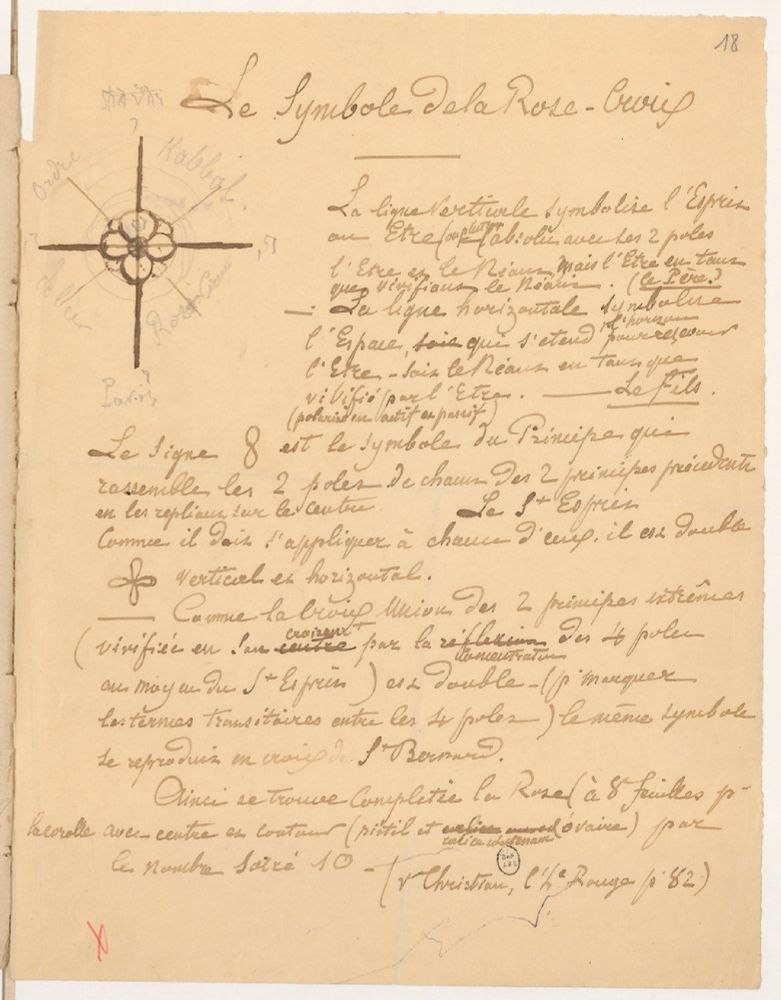 18
Le Symbole de la Rose-Croix
Ordre
Kabbal.
de la
Rose-Croix
Paris
La ligne Verticale symbolise l'Esprit
ou Etre (ou plutôt) (absolu avec ses 2 poles
l'Etre et le Néant, mais l'Etre en tant
que vivifiant le Néant. (le Père.)
— La ligne horizontale symbolise
l'Espace, soit qui s'etend pour recevoir
l'Etre - soit le Néant en tant que
vivifié par l'Etre. — Le Fils.
(polarisé en actif et passif)
Le Signe 8 est le symbole du Principe qui
rassemble les 2 poles de chacun des 2 principes précédents
en les repliant sur le centre. Le St Esprit
Comme il doit s'appliquer à chacun d'eux, il est double
vertical et horizontal.
— Comme la Croix Union des 2 principes extrêmes
(vivifiée en son centre croisemt par la réflexion concentration des 4 poles
au moyen du St Esprit) est double - (pr marquer
les termes transitoires entre les 4 poles) le même symbole
se reproduit en croix de St Bernard.
Ainsi se trouve Completée la Rose (à 8 feuilles pr
la corolle avec centre et contour (pistil et calice contenant ovaire) par
le nombre sacré 10 -
(v Christian, l'he Rouge p 82)